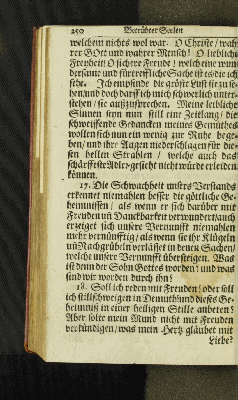 250 Betrübter Seelen
welchem nichts wol war. O Christe / wah-
rer GOtt und wahrer Mensch! O liebliche
Freyheit! O sichere Freude! welch eine wun-
dersame und fürtreffliche Sache ist es die ich
sehe. Ich empfinde die gröste Lust sie zu se-
hen / und doch darff ich mich schwerlich unter-
stehen / sie außzusprechen. Meine leibliche
Sinnen seyn nun still eine Zeitlang / die
schweiffende Gedancken meines Gemüthes
wollen sich nun ein wenig zur Ruhe bege-
ben / und ihr Augen niederschlagen für die-
sen hellen Strahlen / welche auch das
schärffeste Adler-gesicht nicht würde erleiden
können.
17. Die Schwachheit unsers Verstands
erkennt niemahlen besser die göttliche Ge-
heimnussen / als wenn er sich darüber mit
Freuden uñ Danckbarkeit verwundert / auch
erzeiget sich unsere Vernunfft niemahlen
mehr vernünfftig / als wenn sie ihr Klüglen
uñ Nachgrüblen verlässet in denen Sachen /
welche unser Vernunfft übersteigen. Was
ist denn der Sohn Gottes worden? und was
sind wir worden durch ihn?
18. Soll ich reden mit Freuden / oder soll
ich stillschweigen in Demuth / und dieses Ge-
heimnuß in einer heiligen Stille anbeten?
Aber solte mein Mund nicht mit Freuden
verkündigen / was mein Hertz glaubet mit
Liebe?